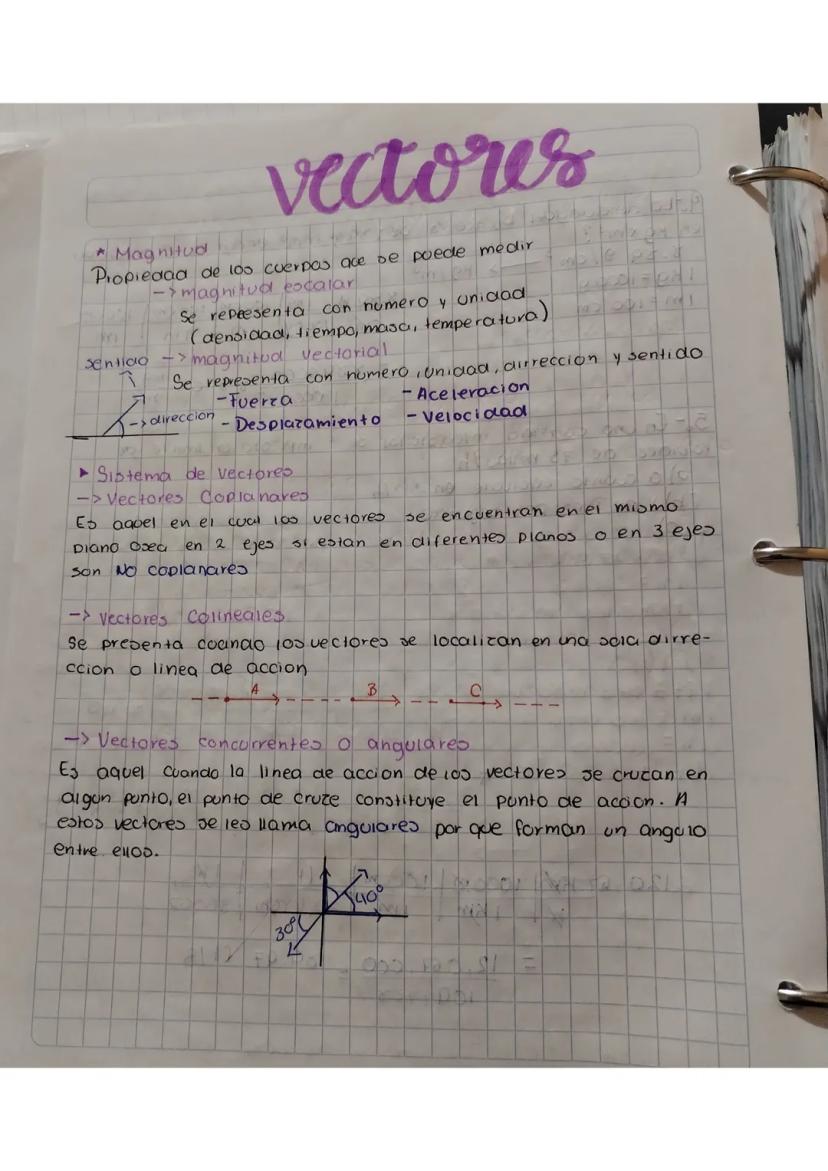 vectores
* Magnitud
Propiedad de los cuerpos que se puede medir
-> magnitud escalar
Se representa con numero y unidad
(densidad, tiempo, masa, temperatura)
sentido -> magnitud vectorial
Se representa con numero, unidad, dirreccion y sentido
-Fuerza -Aceleracion
-> direccion -Desplazamiento -Velocidad
▸ Sistema de vectores
-> Vectores Coplanares
Es aquel en el cual los vectores se encuentran en el mismo
plano osea en 2 ejes si estan en diferentes planos o en 3 ejes
son NO coplanares
-> Vectores Colineales
Se presenta cuando los vectores se localizan en una sola dirre-
ccion o linea de accion
A B C
-> Vectores concurrentes o angulares
Es aquel cuando la linea de accion de los vectores se cruzan en
algun punto, el punto de cruze constituye el punto de accion. A
estos vectores se les llama angulares por que forman un angulo
entre ellos.
40°
30°